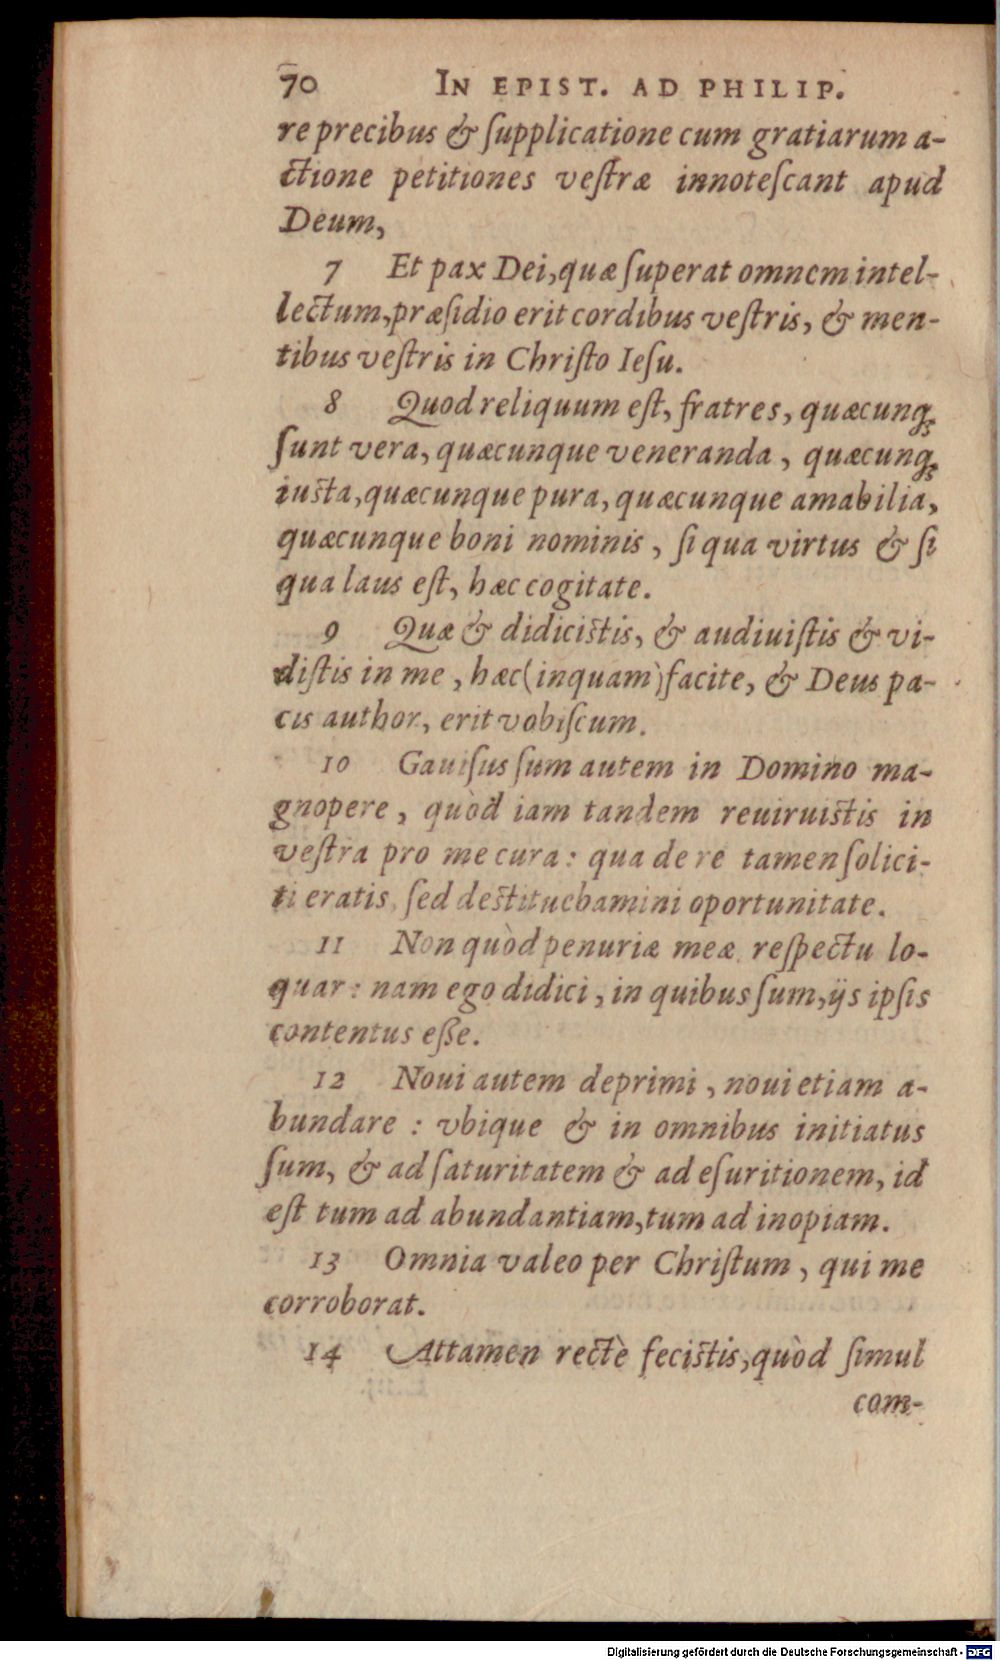 70 IN EPIST. AD PHILIP.
re precibus & ſupplicatione cum gratiarum a-
ctione petitiones veſtræ innoteſcant apud
Deum,
7 Et pax Dei, quæ ſuperat omnem intel-
lectum, præſidio erit cordibus veſtris, & men-
tibus veſtris in Chriſto Ieſu.
8 Quod reliquum eſt, fratres, quæcunqꝫ
ſunt vera, quæcunque veneranda, quæcunqꝫ
iuſta, quæcunque pura, quæcunque amabilia,
quæcunque boni nominis, ſi qua virtus & ſi
qua laus eſt, hæc cogitate.
9 Quæ & didiciſtis, & audiuiſtis & vi-
diſtis in me, hæc (inquam) facite, & Deus pa-
cis author, erit vobiſcum.
10 Gauiſus ſum autem in Domino ma-
gnopere, quòd iam tandem reuiruiſtis in
veſtra pro me cura: qua de re tamen ſolici-
ti eratis, ſed deſtituebamini oportunitate.
11 Non quòd penuriæ meæ reſpectu lo-
quar: nam ego didici, in quibus ſum, ijs ipſis
contentus eſſe.
12 Noui autem deprimi, noui etiam a-
bundare: vbique & in omnibus initiatus
ſum, & ad ſaturitatem & ad eſuritionem, id
eſt tum ad abundantiam, tum ad inopiam.
13 Omnia valeo per Chriſtum, qui me
corroborat.
14 Attamen rectè feciſtis, quòd ſimul
com-
Digitalisierung gefördert durch die Deutsche Forschungsgemeinschaft - DFG